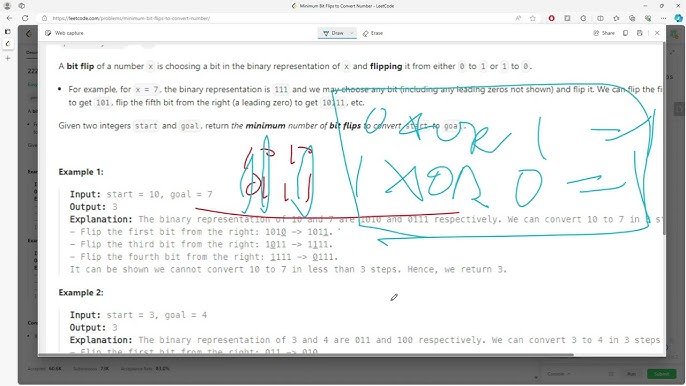 Minimum Bit Flips to Convert Number - LeetCode
https://leetcode.com/problems/minimum-bit-flips-to-convert-number/
Web capture
Draw
Erase
A bit flip of a number x is choosing a bit in the binary representation of x and flipping it from either 0 to 1 or 1 to 0.
• For example, for x = 7, the binary representation is 111 and we may choose any bit (including any leading zeros not shown) and flip it. We can flip the fi
to get 101, flip the fifth bit from the right (a leading zero) to get 10111, etc.
Given two integers start and goal, return the minimum number of bit flips to convert start to goal.
0 XOR 1 =
1010
0111
1 XOR 0 = 1
Example 1:
Input: start = 10, goal = 7
Output: 3
Explanation: The binary representation of 10 and 7 are 1010 and 0111 respectively. We can convert 10 to 7 in 3 st
- Flip the first bit from the right: 1010 -> 1011.
- Flip the third bit from the right: 1011 -> 1111.
- Flip the fourth bit from the right: 1111 -> 0111.
It can be shown we cannot convert 10 to 7 in less than 3 steps. Hence, we return 3.
Example 2:
Input: start = 3, goal = 4
Output: 3
Explanation: The binary representation of 3 and 4 are 011 and 100 respectively. We can convert 3 to 4 in 3 steps
- Flip the first bit from the right: 011 -> 010
Accepted
Submissions
Acceptance Rate
Console
Run
Submit